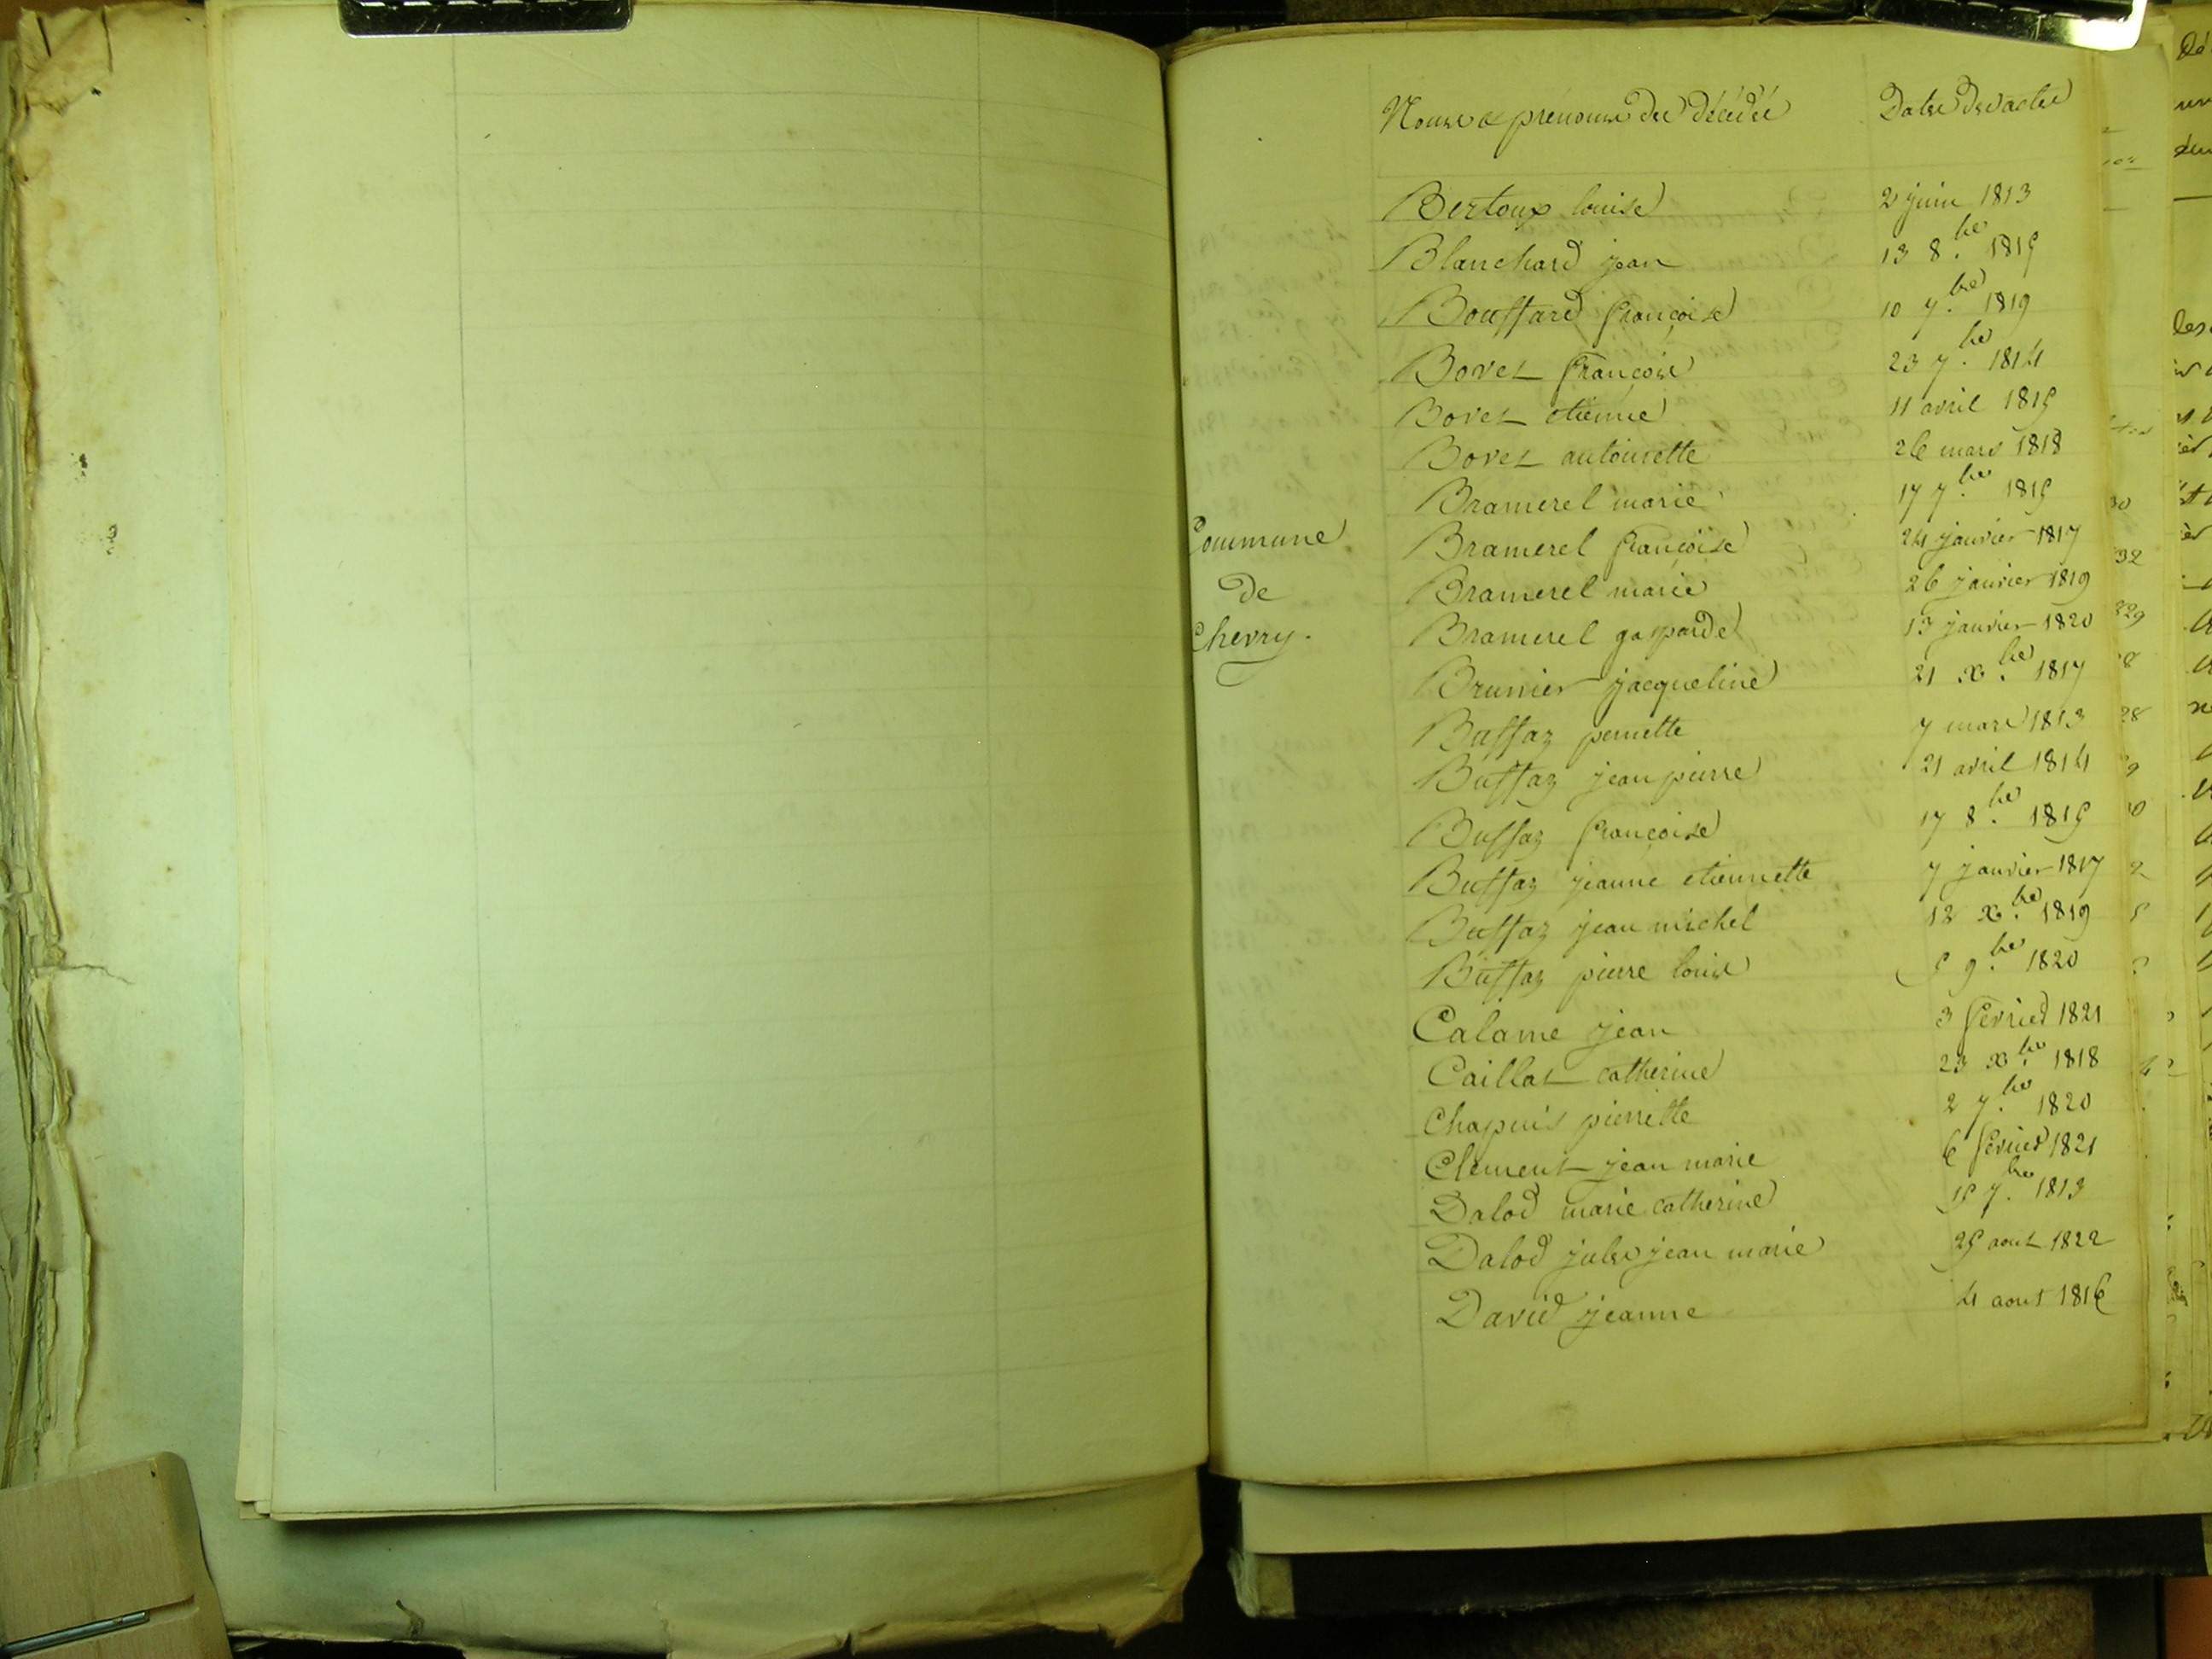 Noms & prénoms des décédés Dates des actes
Bertoux louise 2 juin 1813
Blanchard jean 13 8.bre 1815
Bouffard françoise 10 7.bre 1819
Bovet françois 23 7.bre 1814
Bovet etienne 11 avril 1815
Bovet antoinette 26 mars 1818
Bramerel marie 17 7.bre 1815
Commune
de
Chevry.
Bramerel françoise 24 janvier 1817
Bramerel marie 26 janvier 1819
Bramerel gasparde 13 janvier 1820
Brunier jacqueline 21 x.bre 1817
Buffaz pernette 7 mars 1813
Buffaz jean pierre 21 avril 1814
Buffaz françoise 17 8.bre 1815
Buffaz jeanne etiennette 7 janvier 1817
Buffaz jean michel 12 x.bre 1819
Buffaz pierre louis 5 9.bre 1820
Calame jean 3 février 1821
Caillat catherine 23 x.bre 1818
Chapuis pierrette 2 7.bre 1820
Clement jean marie 6 février 1821
Dalod marie catherine 15 7.bre 1813
Dalod jules jean marie 25 aout 1822
David jeanne 4 aout 1816